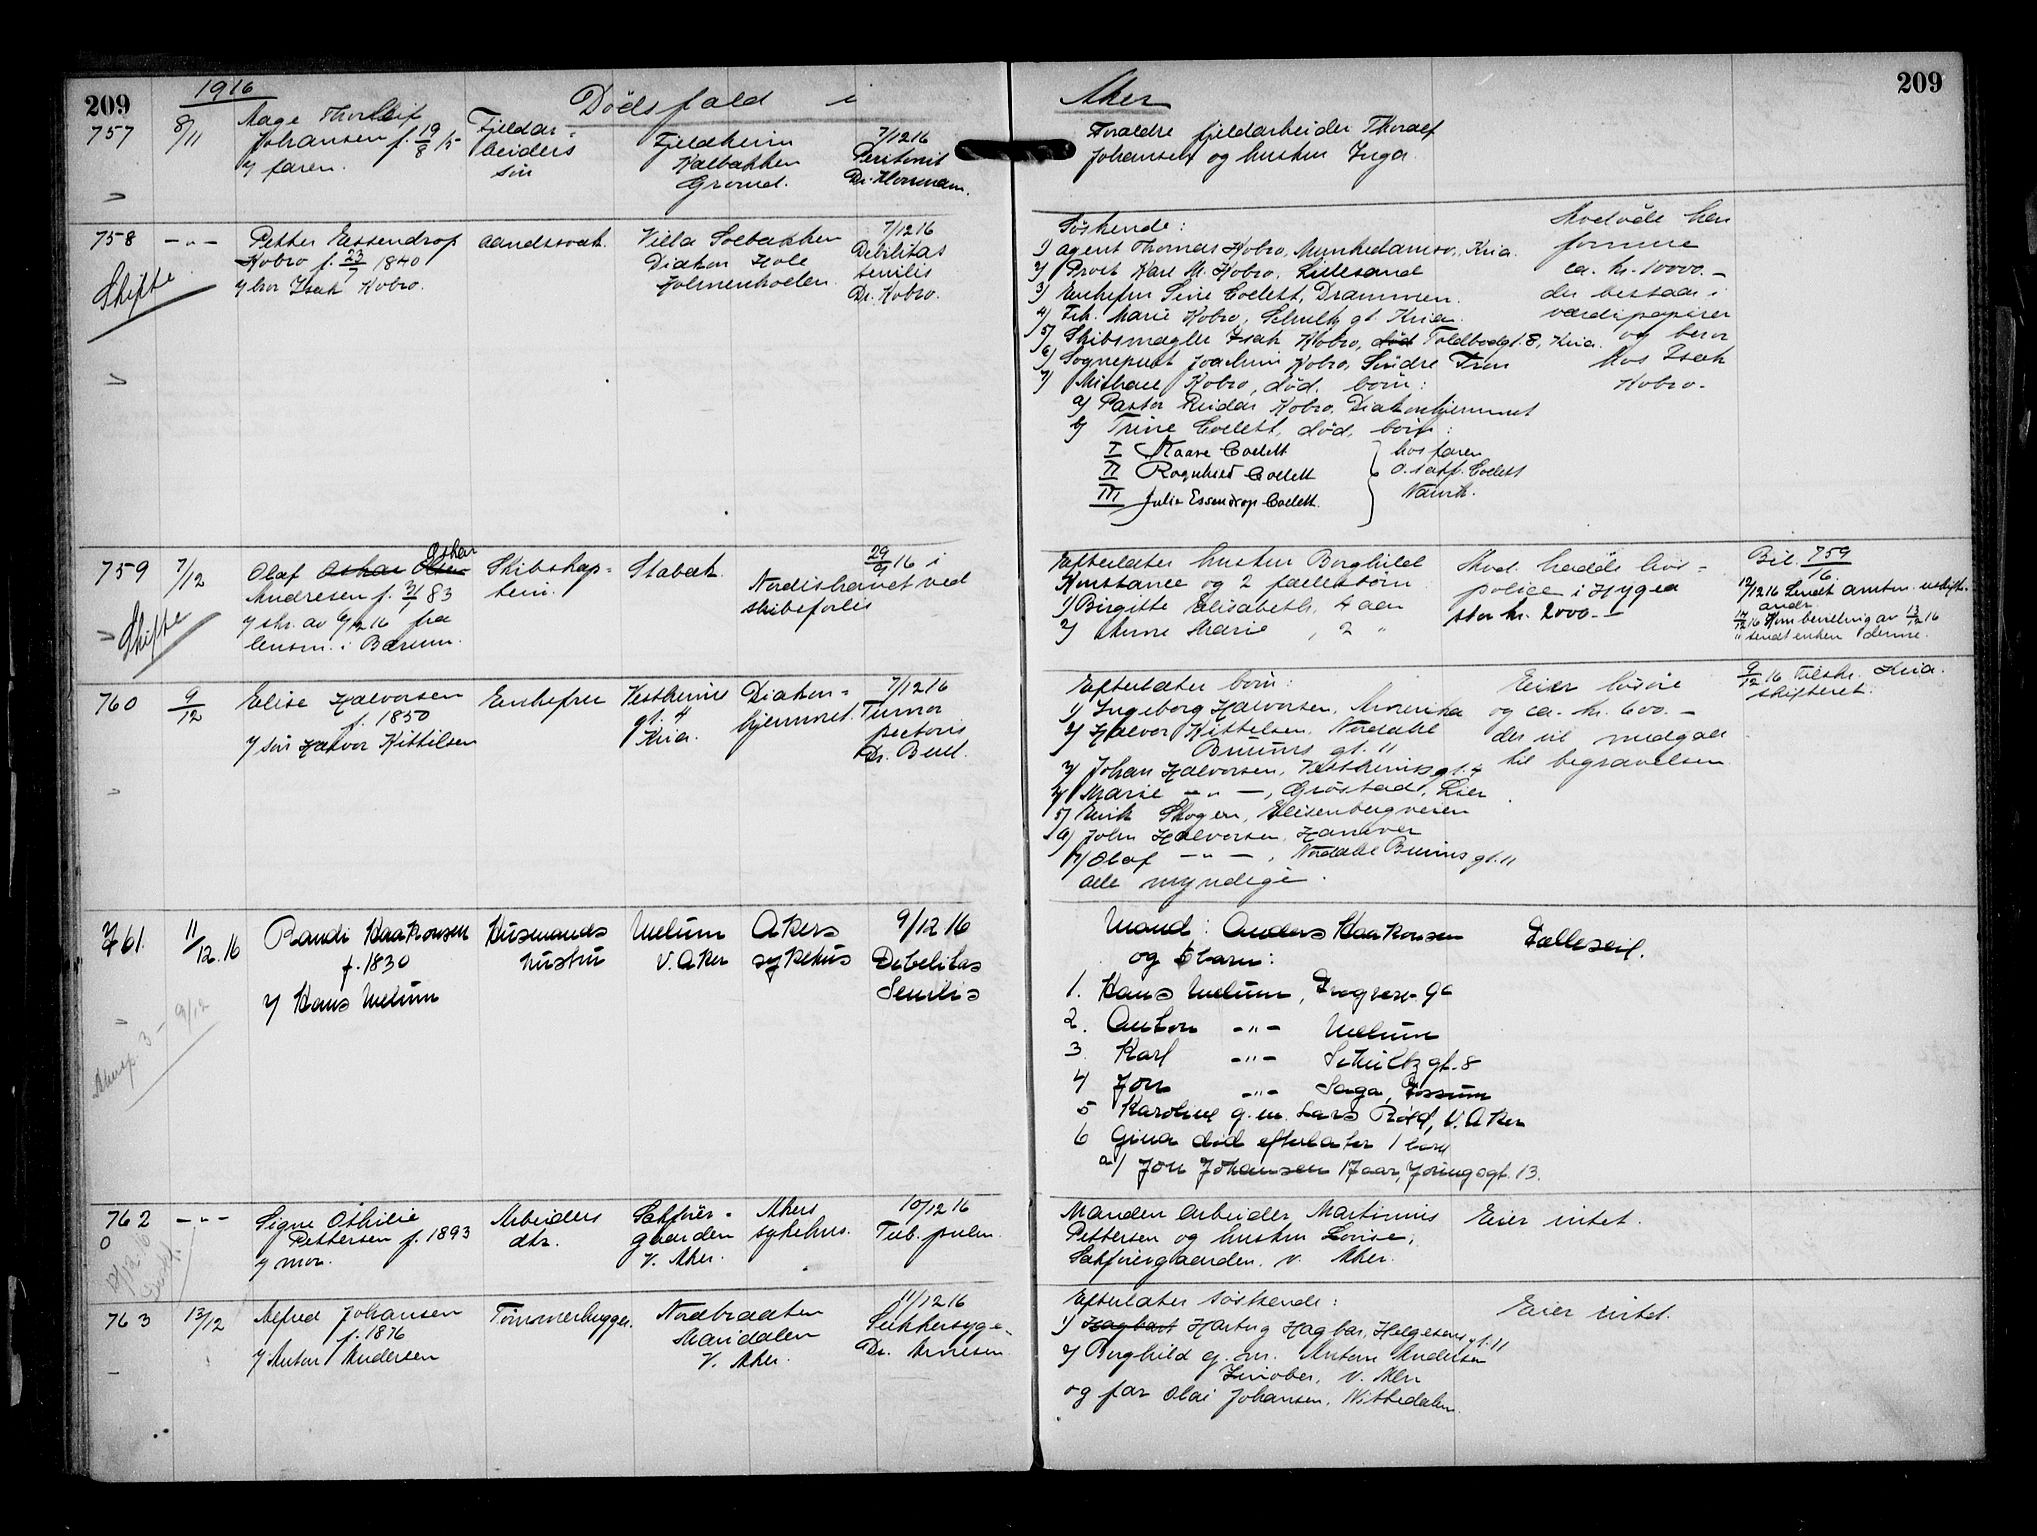 209
1916
Dödsfald i Aker
209
757
8/11
Aage Thorleif
Johansen f. 19/8 15
y faren.
Fjeldar-
beiders
sön
Fjeldheim
Kalbakken
Grorud.
7/12 16
Peritonit
Foraeldre fjeldarbeider Thoralf
Johansen og hustru Inga.
758
— " —
Skifte
Petter Essendrop
Kobro f. 23/7 1840
y bror Isak Kobro.
aandssvak.
Villa Solbakken
Diakon Hole
Holmenkollen.
7/12 16
Debilitas
senilis
Dr. Kobro.
Söskende:
1) agent Thomas Kobro, Munkedamsv., Kria.
2) Provst Karl M. Kobro, Lillesand
3) Enkefru Sine Collett, Drammen.
4) Frk. Marie Kobro, Schultz gt. Kria.
5) Skibsmægler Isak Kobro, Toldbodgt. 8, Kria.
6) Sogneprest Joachim Kobro, Söndre Fron
7) Michael Kobro, död. börn:
a) Pastor Reidar Kobro, Diakonhjemmet
b) Trine Collett, död, börn:
I Kaare Collett
II Ragnhild Collett
III Julie Essendrop Collett.
hos faren
o.sakf. Collett
Narvik.
Avdöde har
formue
ca. kr. 10000.—
der bestaar i
værdipapirer
og beror
hos Isak
Kobro.
759
7/12
Skifte
Olaf Oskar Olsen Oskar
Andresen f. 31/1 83
y skr. av 6/12 16 fra
lensm. i Bærum.
Skibskap-
tein.
Stabæk.
29/9 16 i
Nordishavet ved
skibsforlis
Efterlater hustru Borghild
Konstance og 2 fællesbörn
1) Birgitte Elisabeth, 4 aar
2) Anne Marie, 2 "
Avd. hadde livs-
police i Hygea
stor kr. 2000.—
Bil. 759/16
12/12 16 Sendt amtm. uskift.
andr.
14/12 16 Kom bevilling av 13/12 16
" sendt enken denne.
760
9/12
Elise Halvorsen
f. 1850
y sön Halvor Kittilsen
Enkefru
Vestheims
gt. 4
Kria.
Diakon-
hjemmet.
7/12 16
Tumor
pectoris
Efterlater börn:
1) Ingeborg Halvorsen, Amerika
2) Halvor Kittelsen, Nordahl
Bruuns gt. 11
3) Johan Halvorsen, Vestheimsgt. 4
4) Marie — " —, Gröstad, Lier
5) Erik Skogen, Elisenbergveien
6) John Halvorsen, Hanover
7) Olaf — " —, Nordahl Bruuns gt. 11
alle myndige.
Eier lösöre
og ca. kr. 600.—
der vil medgaa
til begravelsen
9/12 16 Tilskr. Kria.
skifteret.
761.
11/12.16
3 — 9/12
Randi Haakonsen
f. 1830
y Hans Melum
Husmands
hustru
Melum
V. Aker
Akers
sykehus
9/12 16
Debilitas
Senilis
Mand: Anders Haakonsen
og 6 barn:
1. Hans Melum, Frognerv. 9c
2. Anton — " — Melum
3. Karl — " — Schultz gt. 8
4 Jon — " — Saga, Fossum
5 Karoline g. m. Lars Röd, V. Aker
6 Gina död efterlater 1 barn
a) Jon Johansen 17 aar, Jörungsgt. 13.
Fælleseie.
762
0
— " —
12/12.16
Signe Othilie
Pettersen f. 1893
y mor.
Arbeiders
dtr.
Sakförer-
gaarden
V. Aker.
Akers
sykehus.
10/12 16
Tub. pulm.
Manden arbeider Martinius
Pettersen og hustru Lovise,
Sakförergaarden. V. Aker.
Eier intet.
763
13/12
Alfred Johansen
f. 1876
y Anton Andersen
Tömmerhugger.
Nordbraaten
Maridalen
V. Aker.
11/12 16
Sukkersyge.
Dr. Arnesen.
Efterlater söskende:
1) Hagbart Hartvig Hagbar, Helgesens gt. 11
2) Borghild g. m. Anton Andersen
Sinober, V. Aker
og far Olai Johansen, Nittedalen.
Eier intet.